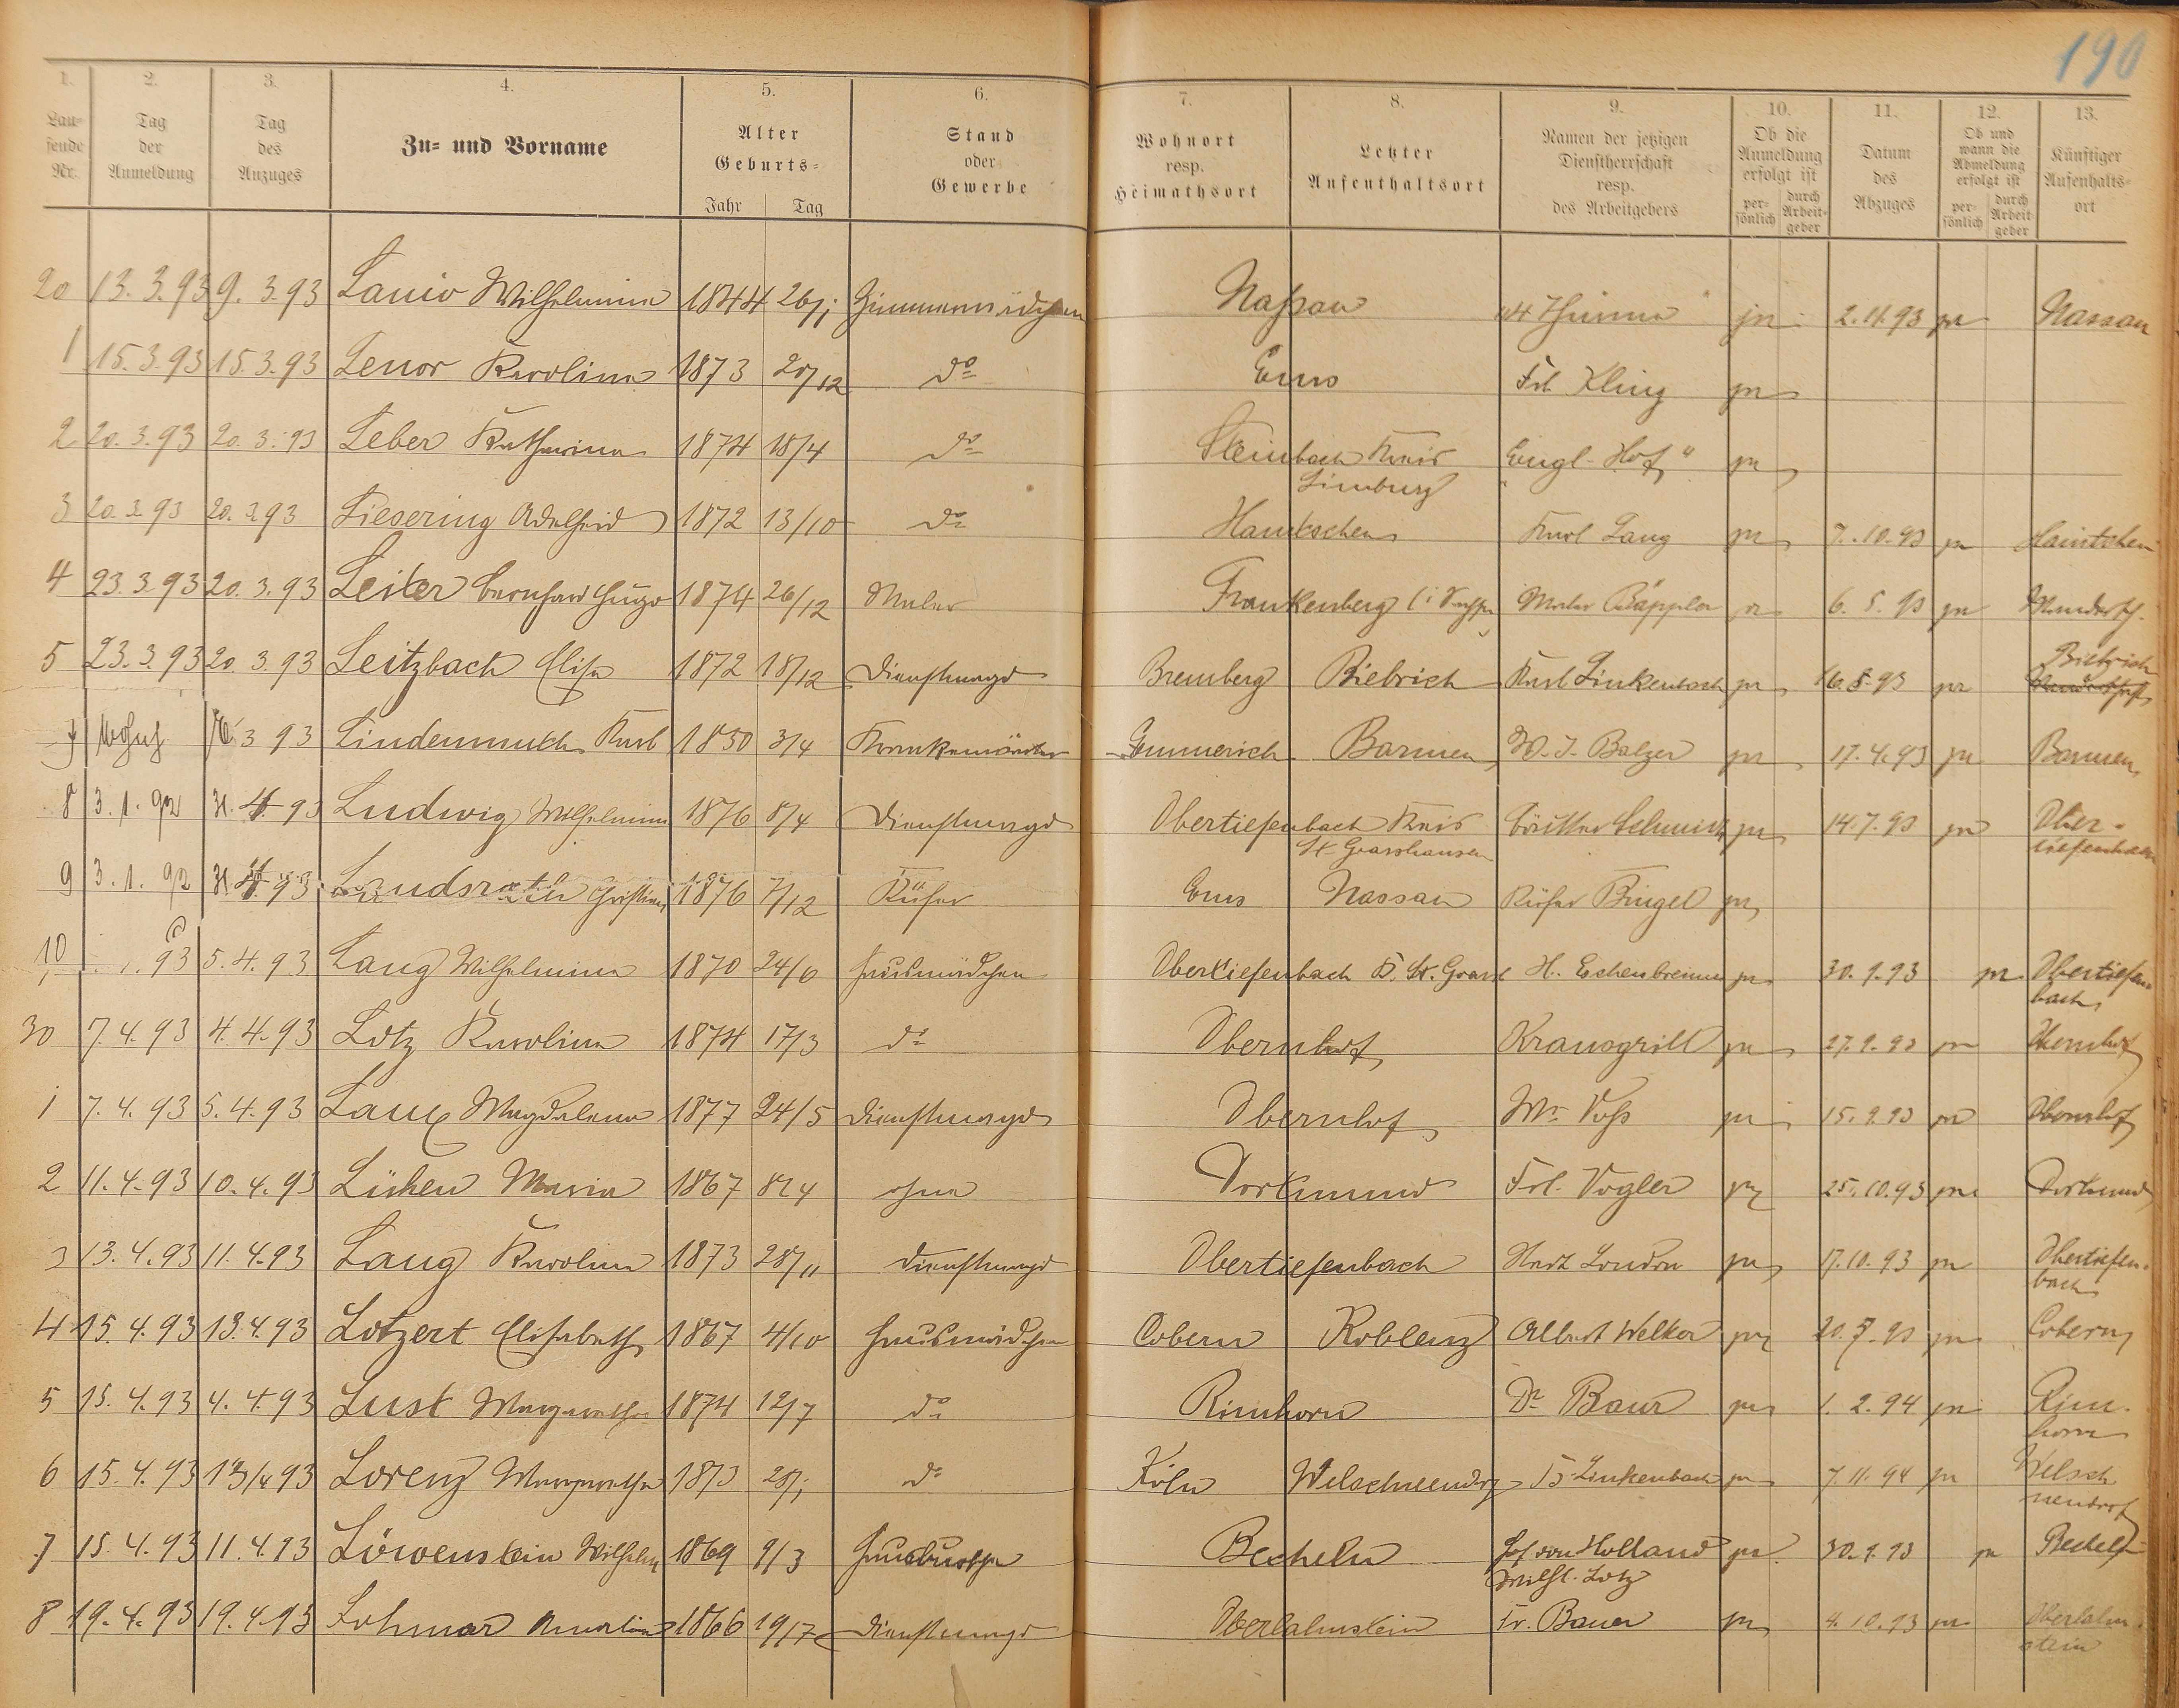 190
1. 2. 3. 4. 5. 6. 7. 8. 9. 10. 11. 12. 13.
Laufende Nr. Tag der Anmeldung Tag des Anzuges Zu- und Vorname Alter Geburts- Jahr Tag Stand oder Gewerbe Wohnort resp. Heimathsort Letzter Aufenthaltsort Namen der jetzigen Dienstherrschaft resp. des Arbeitgebers Ob die Anmeldung erfolgt ist persönlich durch Arbeitgeber Datum des Abzuges Ob und wann die Abmeldung erfolgt ist persönlich durch Arbeitgeber Künftiger Aufenthaltsort
20 13.3.93 9.3.93 Wilhelmina 1844 Zimmermädchen Nassau 2.11.93 Nassau
1 15.3.93 15.3.93 Lenor Karolina 1873 20/12 do Ems Frl. Kling
2 20.3.93 20.3.93 Leber Katharina 1874 18/4 do Steinbach Kreis Limburg "Engl. Hof"
3 20.3.93 20.3.93 Liesering Adelheid 1872 13/10 do Karl Lang 7.10.93 Haintchen
4 23.3.93 20.3.93 Leiter Bernhard Hugo 1874 26/12 Maler Frankenberg i/ Maler Käppler 6.5.93
5 23.3.93 20.3.93 Leitzbach Elise 1872 18/12 Dienstmagd Bremberg Biebrich Karl Linkenbach 16.5.93 Biebrich
7 3 93 Lindenmuth Karl 1850 3/4 Krankenwärter Emmerich Barmen W. J. Balzer 17.4.93 Barmen
8 3.1.92 31.4.93 Ludwig Wilhelmina 1876 8/4 Dienstmagd Obertiefenbach Kreis St. Goarshausen Schmidt 14.7.93 Obertiefenbach
9 3.1.92 31.4.93 Landsrath Christian 1876 7/12 Küfer Ems Nassau Küfer Bingel
10 93 5.4.93 Lang Wilhelmina 1870 24/6 Hausmädchen Obertiefenbach K. St. Goarsh H. Eschenbrenner 30.9.93 Obertiefenbach
30 7.4.93 4.4.93 Lotz Karolina 1874 17/3 do Obernhof Kransgrill 27.9.93 Obernhof
1 7.4.93 5.4.93 Laux Magdalena 1877 24/5 Dienstmagd Obernhof Ww. Voss 15.9.93 Obernhof
2 11.4.93 10.4.93 Lüken Maria 1867 8/4 ohne Dortmund Frl. Vogler 25.10.93 Dortmund
3 13.4.93 11.4.93 Lang Karolina 1873 28/11 Dienstmagd Obertiefenbach Stadt London 17.10.93 Obertiefenbach
4 15.4.93 13.4.93 Lotzert Elisabeth 1867 4/10 Hausmädchen Cobern Koblenz Albert Welker 20.7.93 Cobern
5 15.4.93 4.4.93 Lust Margaretha 1874 12/7 do Rimhorn Dr Baur 1.2.94 Rimhorn
6 15.4.93 13/4 93 Lorenz Margaretha 1873 do Köln Welschneudorf Linkenbach 7.11.94 Welschneudorf
7 15.4.93 11.4.93 Löwenstein Wilhelm 1869 9/3 Hausbursche Becheln Hof von Holland Wilh. Lotz 30.9.93 Becheln
8 19.4.93 19.4.93 Lohmar 1866 19/7 Dienstmagd Oberlahnstein Fr. Bauer 4.10.93 Oberlahnstein